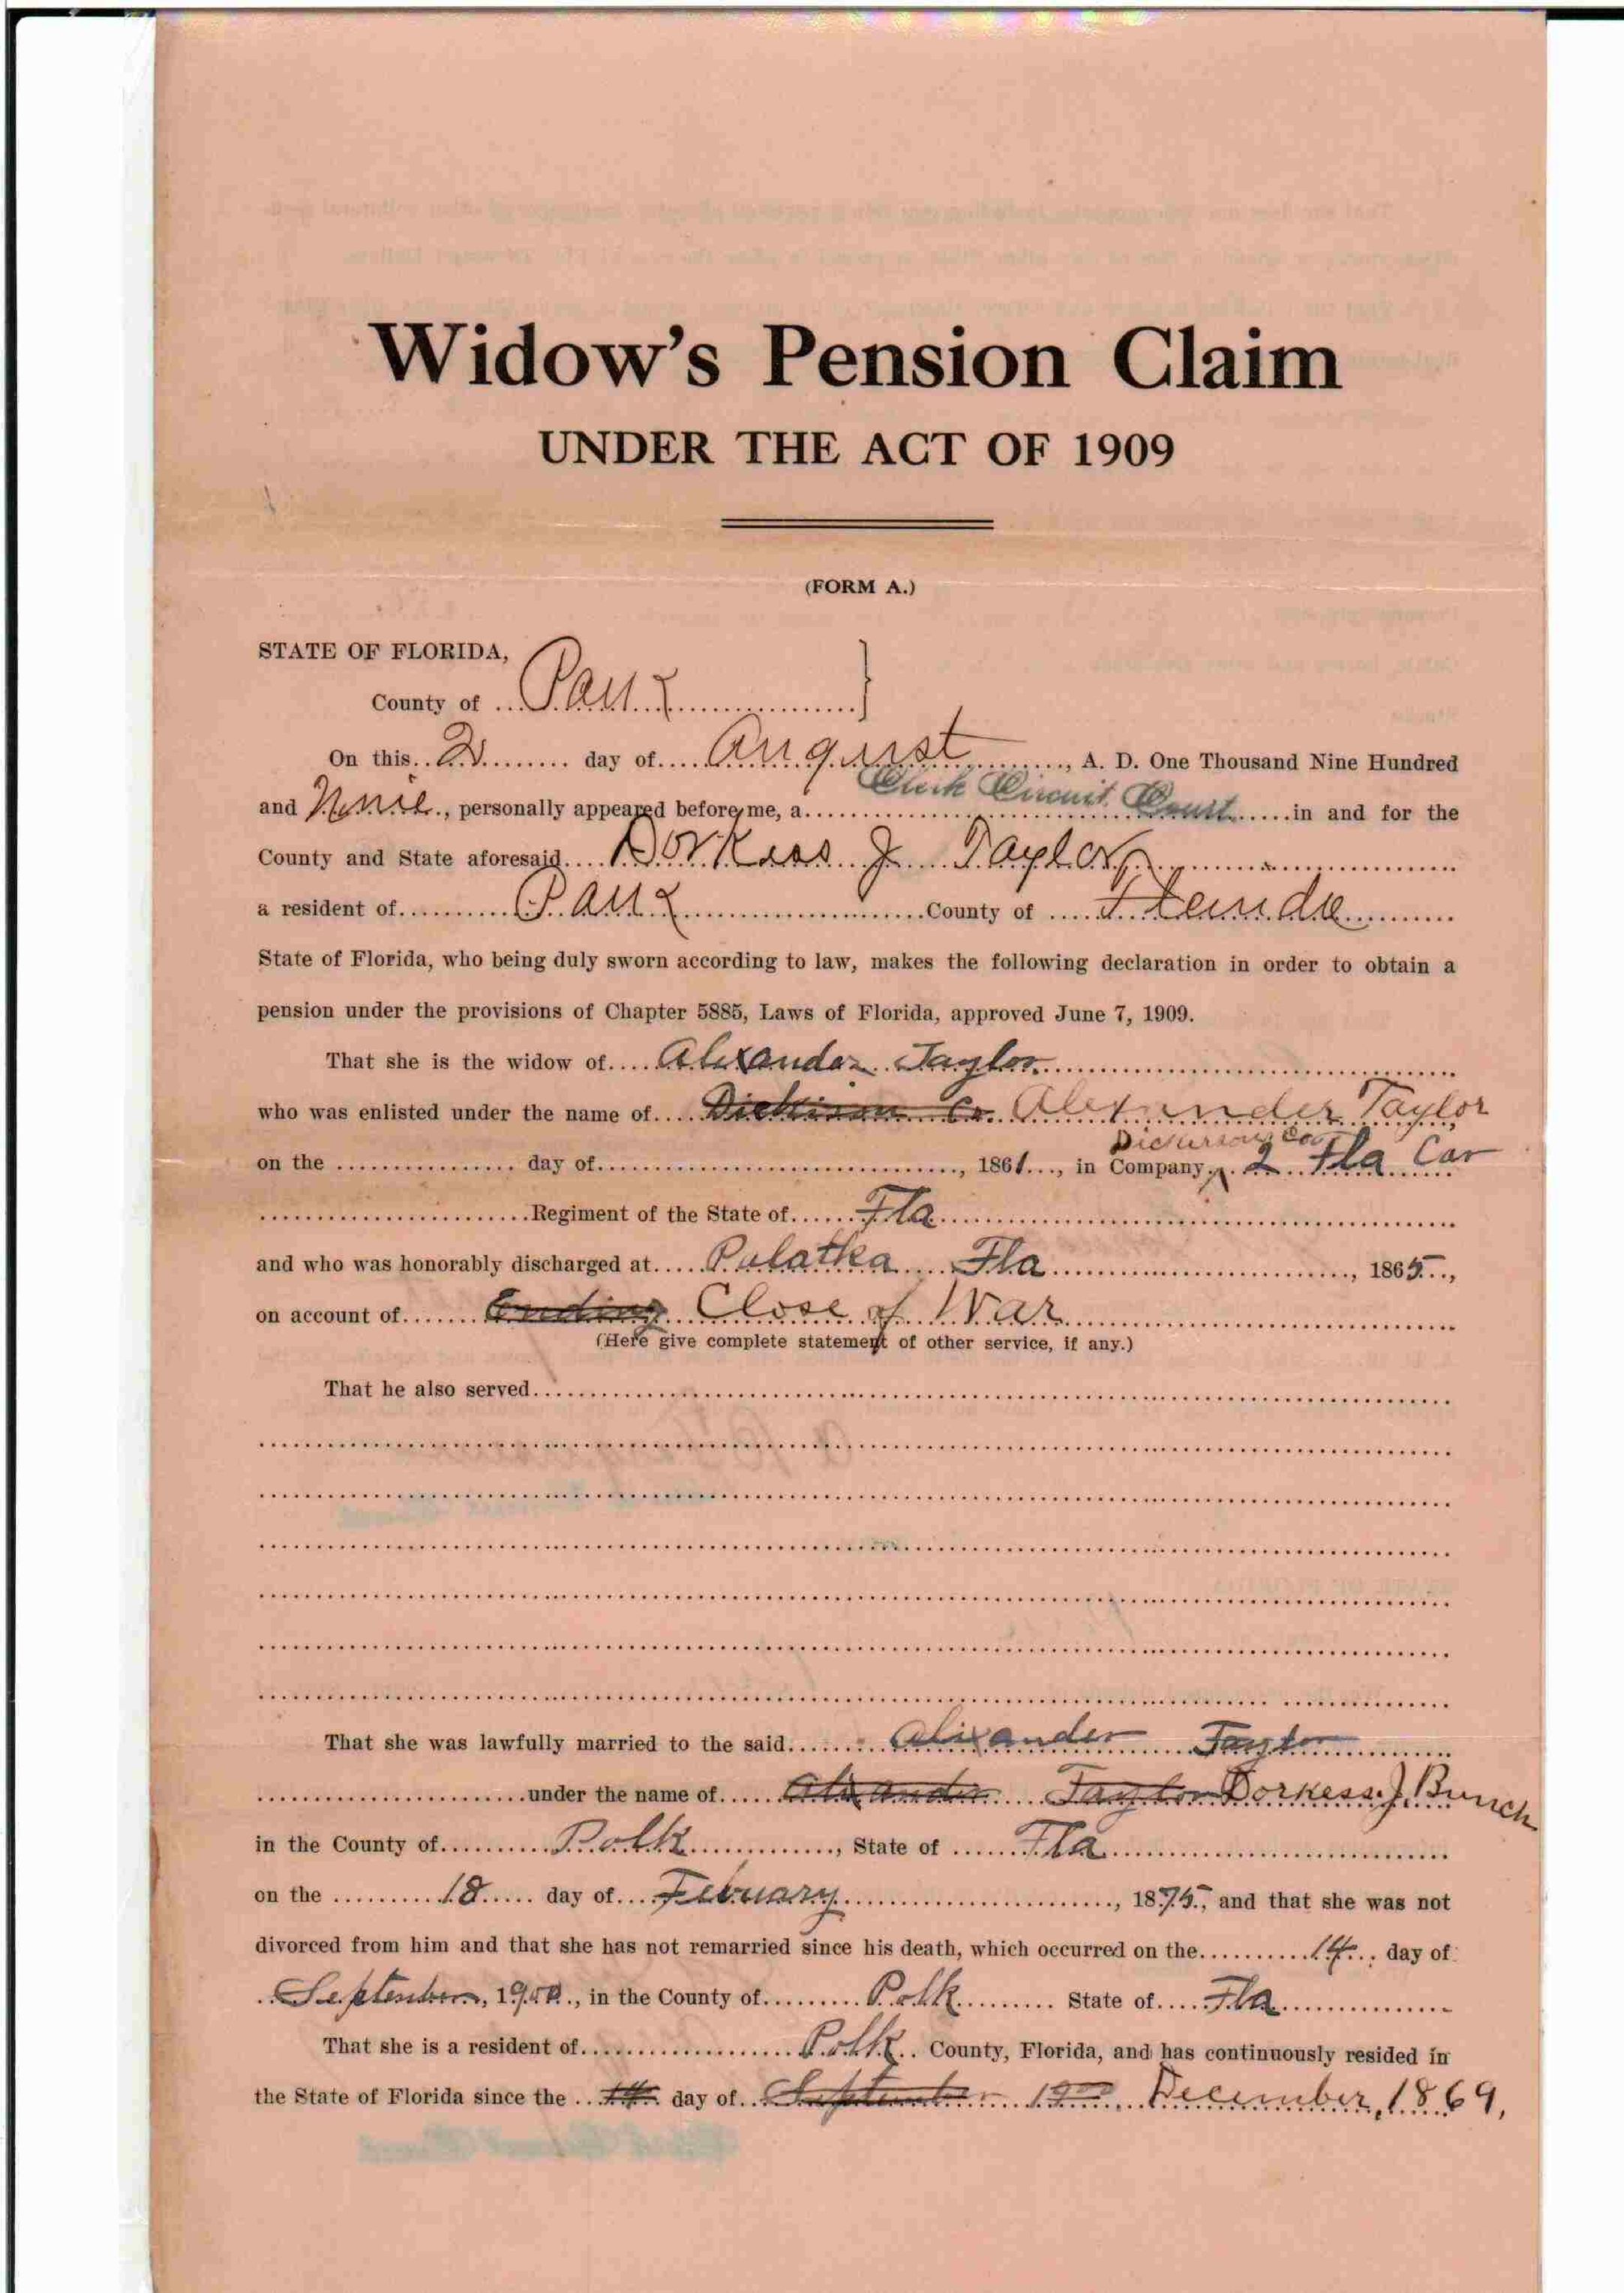 Widow's Pension Claim
UNDER THE ACT OF 1909
(FORM A.)
STATE OF FLORIDA,
County of
On this 2 day of August, A. D. One Thousand Nine Hundred
and, personally appeared before me, a Clerk Circuit Court in and for the
County and State aforesaid Dorkess J Taylor
a resident of County of
State of Florida, who being duly sworn according to law, makes the following declaration in order to obtain a
pension under the provisions of Chapter 5885, Laws of Florida, approved June 7, 1909.
That she is the widow of Alexander Taylor
who was enlisted under the name of Dickison Co. Alexander Taylor
Dickerson's Co
on the day of, 1861, in Company 2 Fla Cav
Regiment of the State of Fla
and who was honorably discharged at Palatka Fla, 1865,
on account of Ending Close of War
(Here give complete statement of other service, if any.)
That he also served
That she was lawfully married to the said Alixander Taylor
under the name of Alixander Taylor Dorkess J. Bunch
in the County of Polk, State of Fla
on the 18 day of February, 1875, and that she was not
divorced from him and that she has not remarried since his death, which occurred on the 14 day of
September, 1900, in the County of Polk State of Fla
That she is a resident of Polk County, Florida, and has continuously resided in
the State of Florida since the 14 day of September 1900 December, 1869,